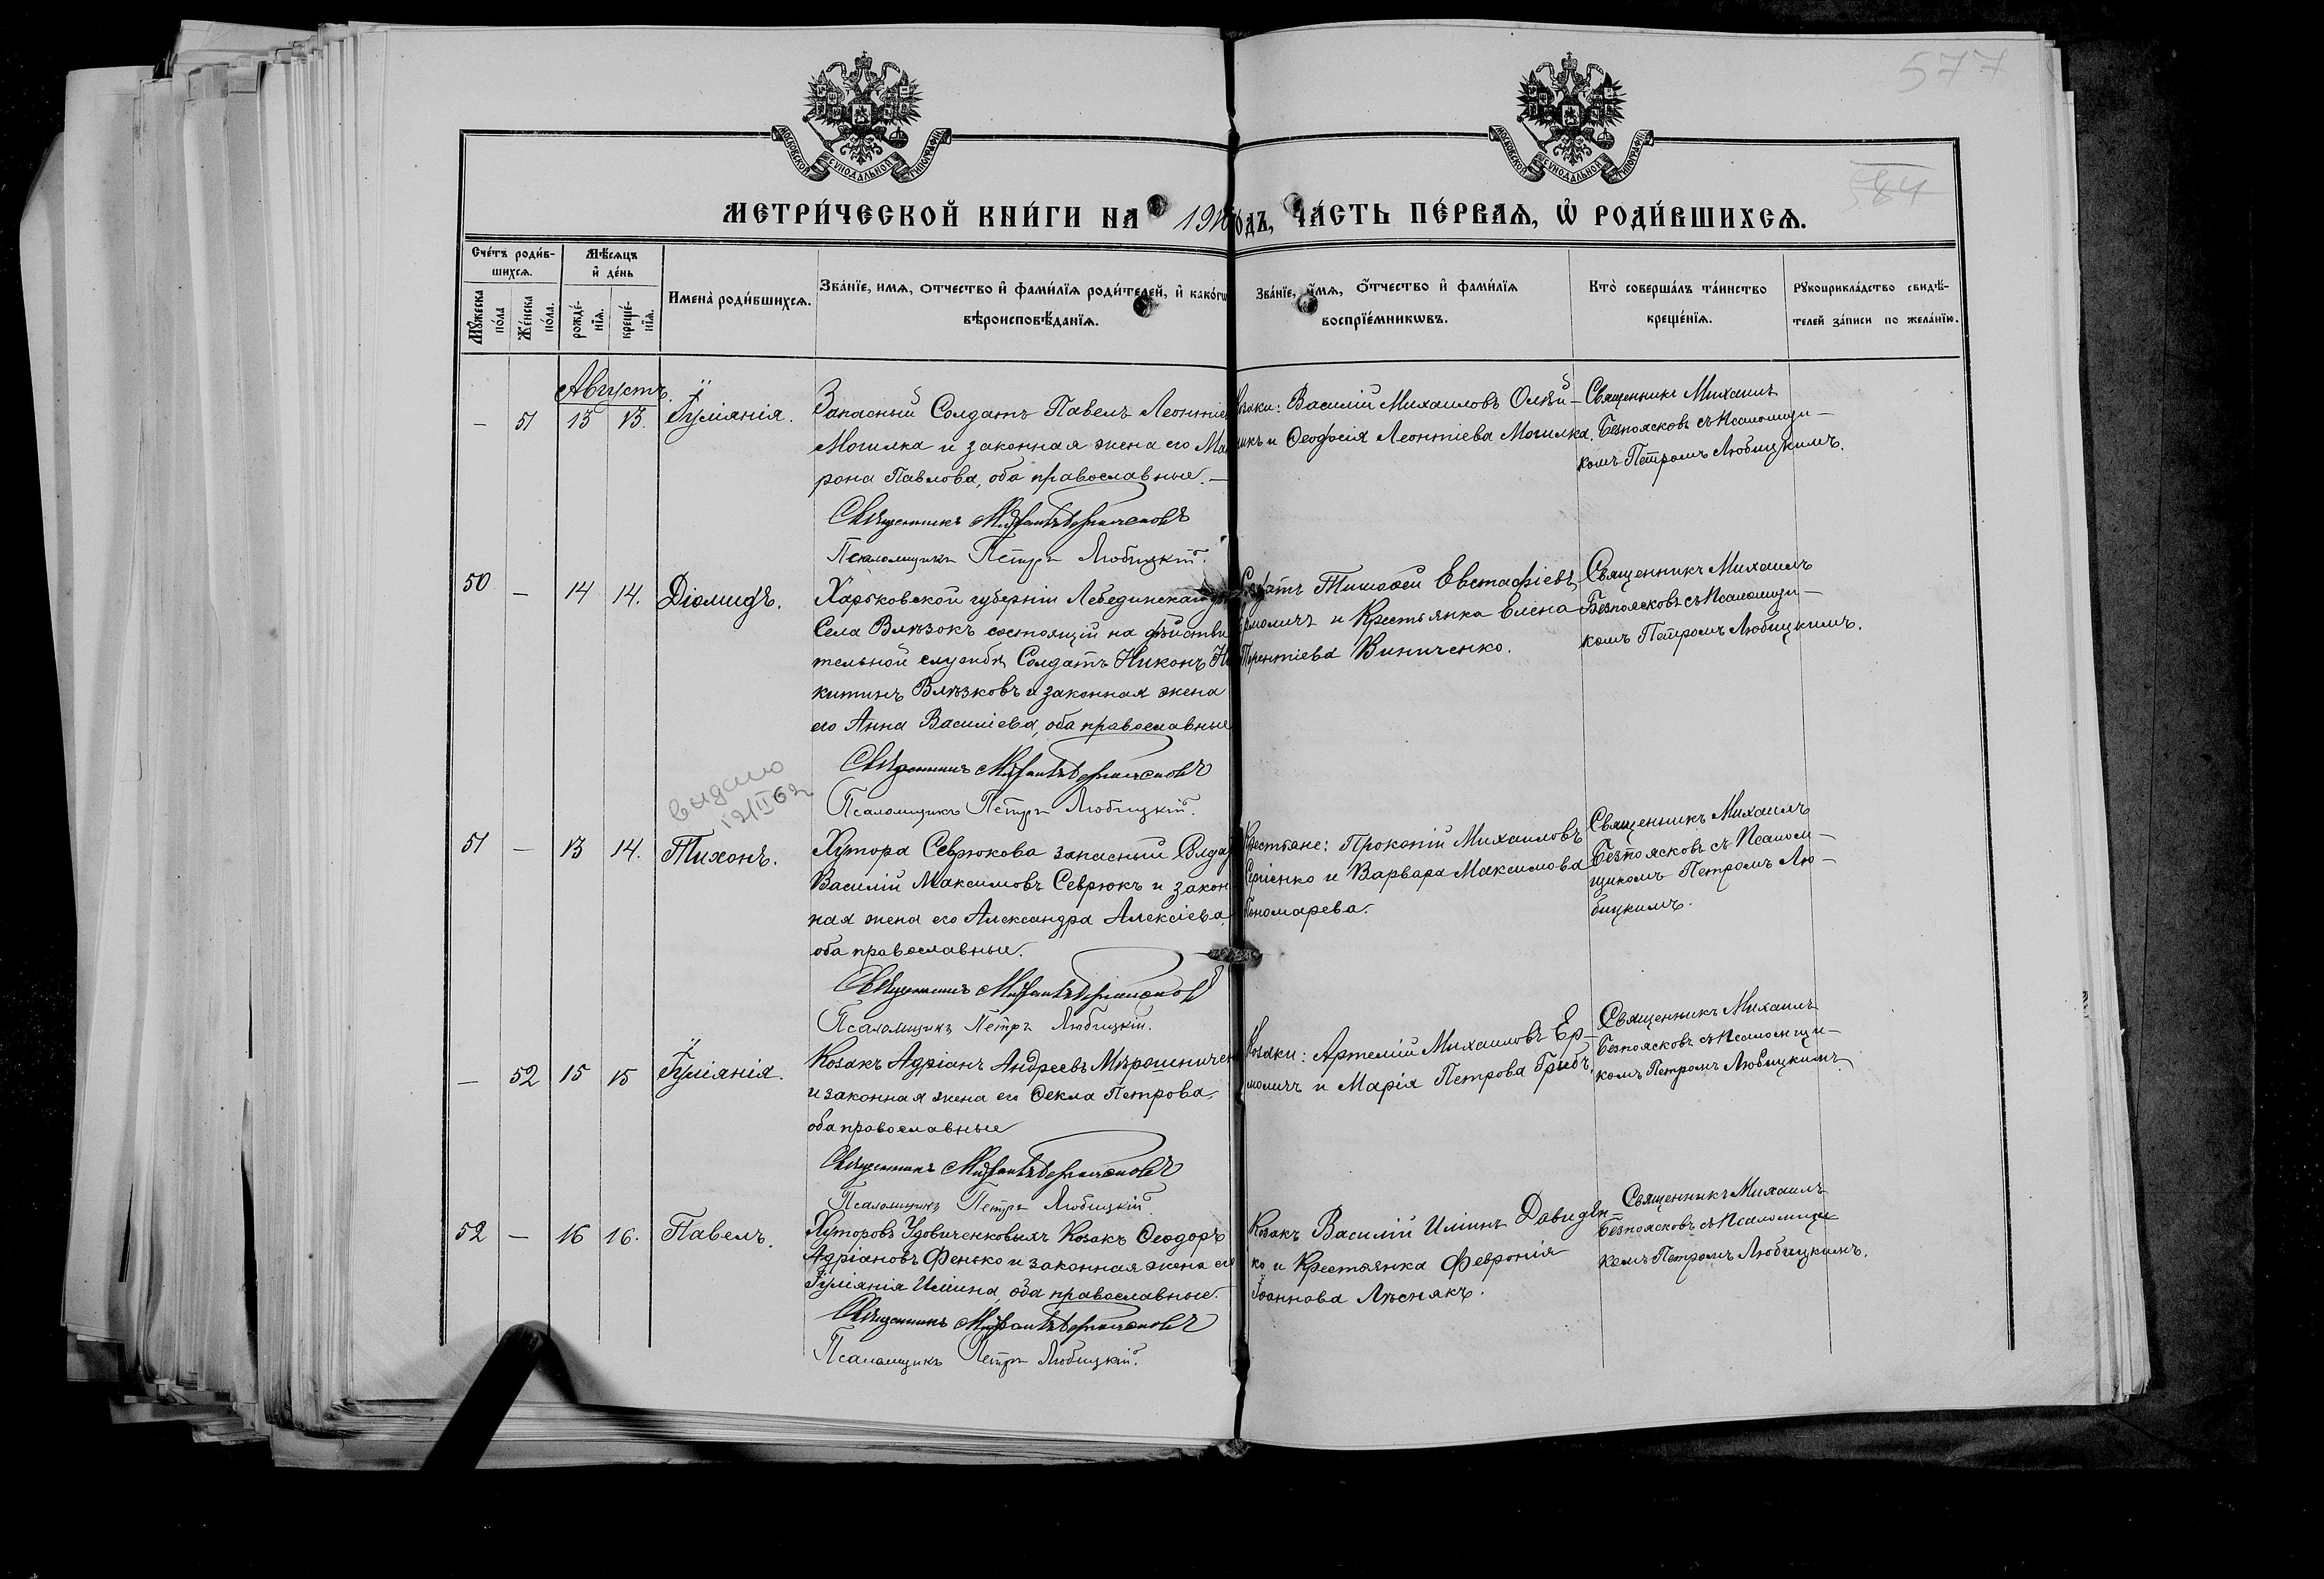 577
584
МОСКОВСКОЙ СУНОДАЛЬНОЙ ТИПОГРАФІИ
МОСКОВСКОЙ СУНОДАЛЬНОЙ ТИПОГРАФІИ
МЕТРИ́ЧЕСКОЙ КНИ́ГИ НА 1910 ОДЪ, ЧА́СТЬ ПЕ́РВАѦ, Ѡ҆ РОДИ́ВШИХСѦ.
Сче́тъ роди́в-
шихсѧ.
Мꙋ́жеска по́ла
Же́нска по́ла.
Мѣ́сѧцъ
и҆ де́нь
рожде́-нїѧ.
креще́-нїѧ.
Имена̀ роди́вшихсѧ.
Зва́нїе, имѧ, отчество и҆ фами́лїѧ роди́телей, и҆ како́гѡ
вѣроисповѣ́данїѧ.
Зва́нїе, и҆́мѧ, о҆́тчество и҆ фами́лїѧ
воспрїе́мникѡвъ.
Кто̀ соверша́лъ та́инство
креще́нїѧ.
Рꙋкоприкла́дство свидѣ́-
телей за́писи по жела́нїю.
Августъ.
— 51 13 13. Іуліанія. Запасный Солдатъ Павелъ Леонтіе
Могилка и законная жена его Ма
рона Павлова, оба православные. —
Священникъ Михаилъ Безпоясковъ
Псаломщикъ Петръ Любицкій.
Козаки: Василій Михаиловъ Олѣй-
никъ и Ѳеодосія Леонтіева Могилка.
Священникъ Михаилъ
Безпоясковъ съ Псаломщи-
комъ Петромъ Любицкимъ.
50 — 14 14. Діомидъ. Харьковской губерніи Лебединскаго
Села Влѣзокъ состоящій на дѣйстви
тельной службѣ Солдатъ Никонъ Ни
китинъ Влѣзковъ и законная жена
его Анна Василіева, оба православные
Священникъ Михаилъ Безпоясковъ
Псаломщикъ Петръ Любицкій.
Солдатъ Тимоѳей Евстафіевъ
Ермоличъ и Крестьянка Елена
Терентіева Виниченко.
Священникъ Михаилъ
Безпоясковъ съ Псаломщи-
комъ Петромъ Любицкимъ.
выдано
12/II 62
51 — 13 14. Тихонъ. Хутора Севрюкова запасный Солда
Василій Максимовъ Севрюкъ и закон
ная жена его Александра Алексіева,
оба православные.
Священникъ Михаилъ Безпоясковъ
Псаломщикъ Петръ Любицкій.
Крестьяне: Прокопій Михаиловъ
Сергіенко и Варвара Максимова
Пономарева.
Священникъ Михаилъ
Безпоясковъ съ Псалом-
щикомъ Петромъ Лю-
бицкимъ.
— 52 15 15 Іуліанія. Козакъ Адріанъ Андреевъ Мирошничен
и законная жена его Ѳекла Петрова,
оба православные
Священникъ Михаилъ Безпоясковъ
Псаломщикъ Петръ Любицкій.
Козаки: Артемій Михаиловъ Ер-
моличъ и Марія Петрова Грибъ.
Священникъ Михаилъ
Безпоясковъ съ Псаломщи-
комъ Петромъ Любицкимъ.
52 — 16 16. Павелъ. Хуторовъ Удовиченковыхъ Козакъ Ѳеодоръ
Адріановъ Фенько и законная жена его
Іуліанія Иліина, оба православные.
Священникъ Михаилъ Безпоясковъ
Псаломщикъ Петръ Любицкій.
Козакъ Василій Иліинъ Давиден-
ко и Крестьянка Февронія
Іоаннова Лѣснякъ.
Священникъ Михаилъ
Безпоясковъ съ Псаломщи
комъ Петромъ Любицкимъ.